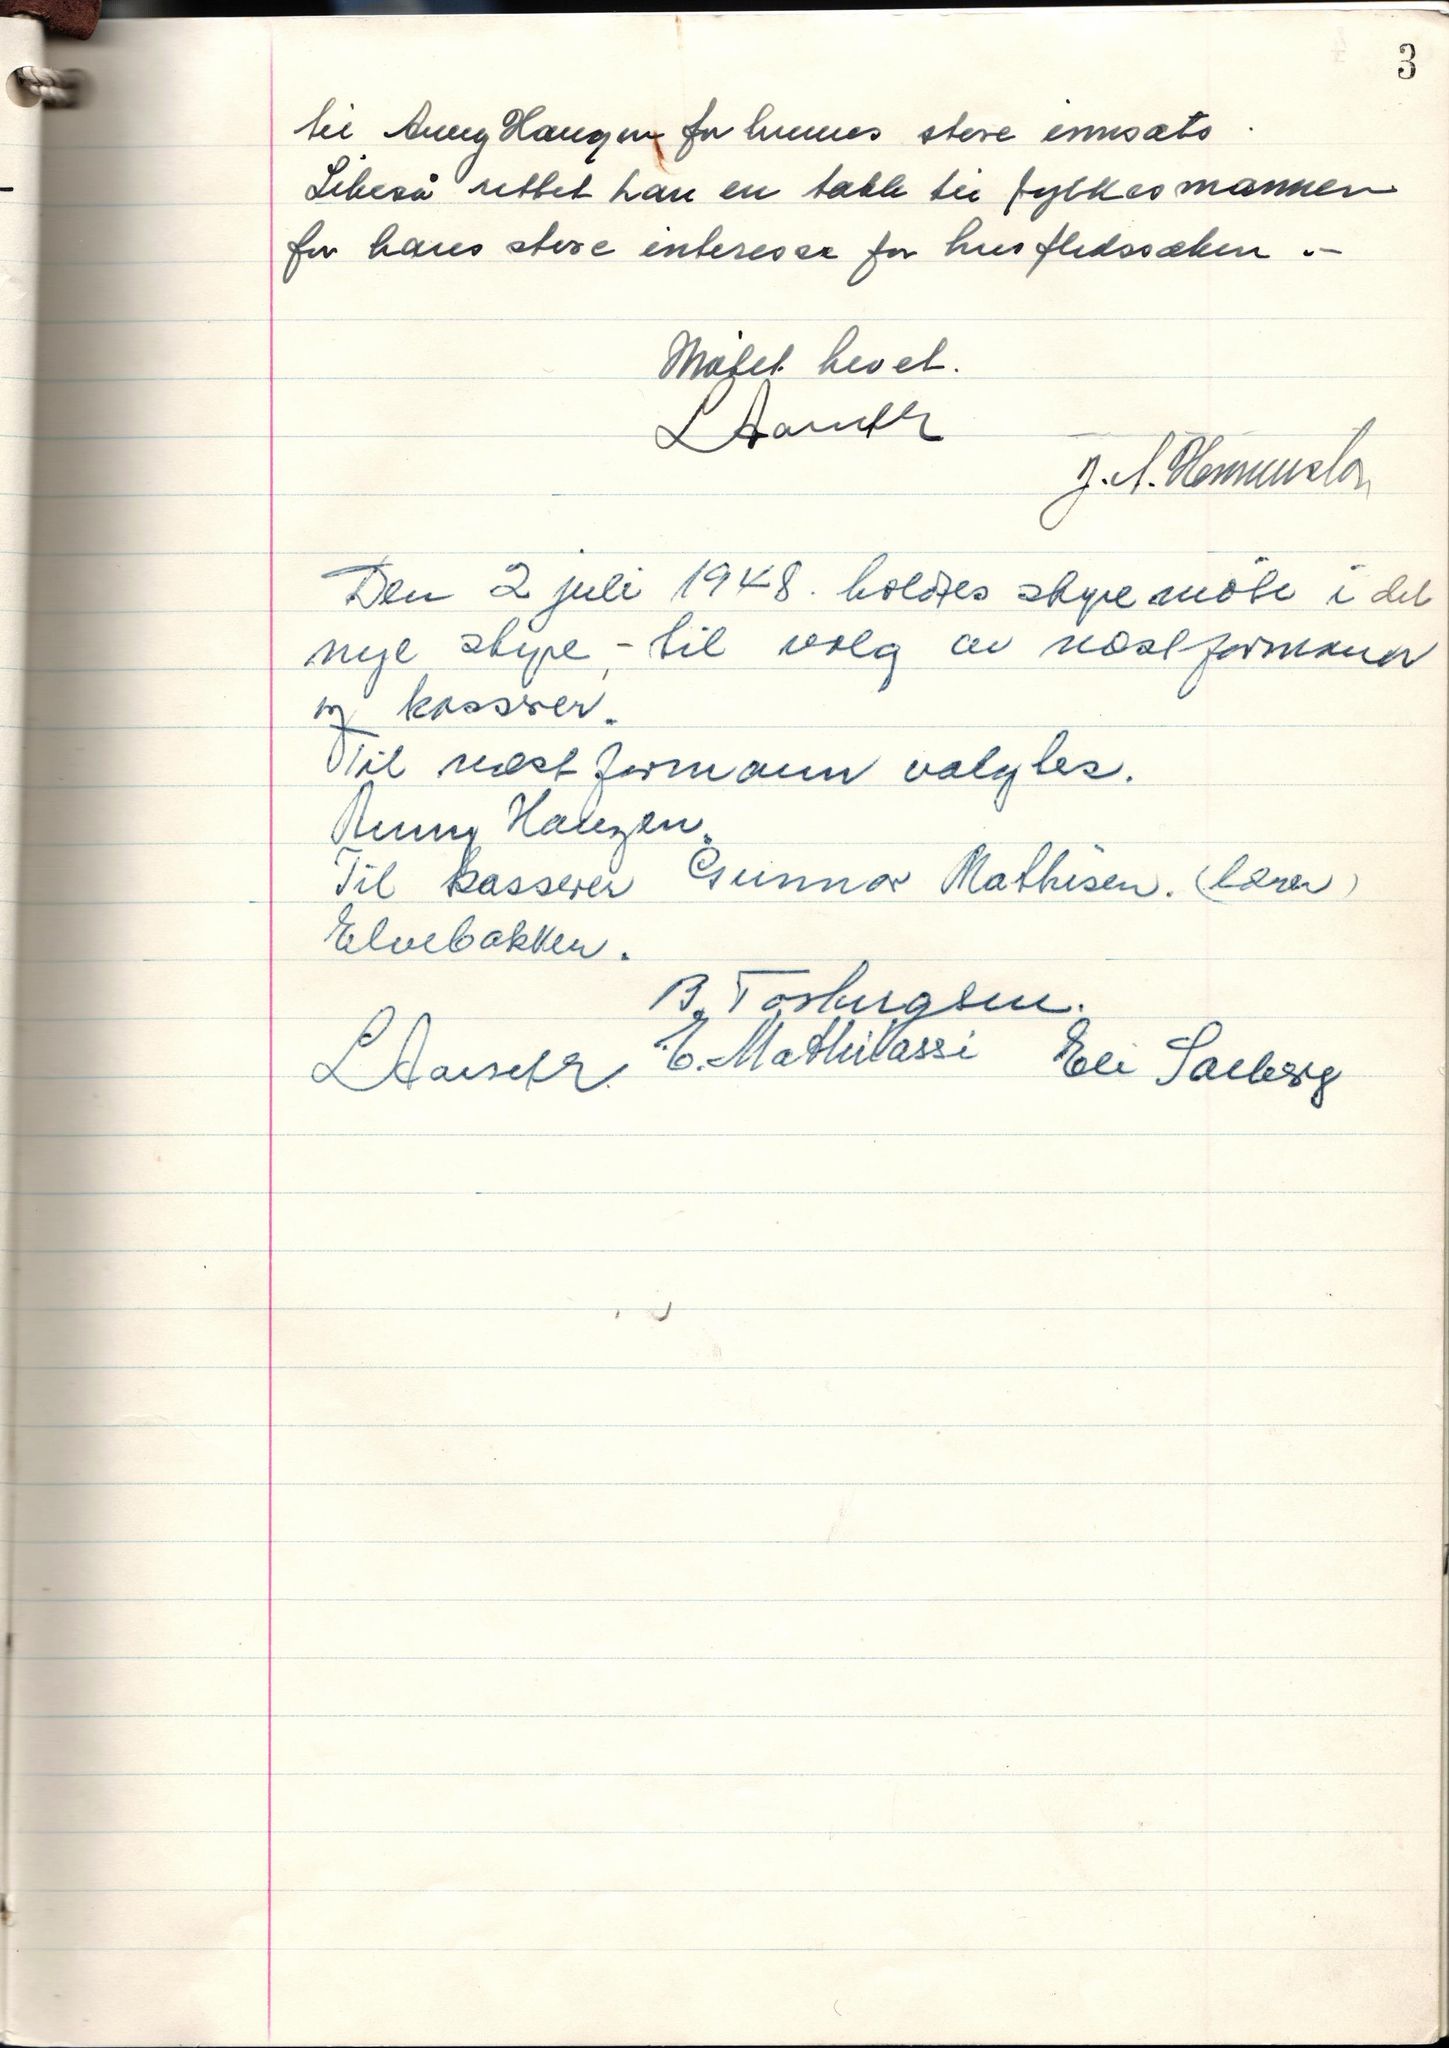 3
til Anny Haugen for hennes store innsats.
Likeså rettet han en takk til fylkesmannen
for hans store interesse for husflidssaken .-
Møtet hevet.
L Aarseth
Den 2 juli 1948. holdtes styremöte i det
nye styre, - til valg av næstformann
og kasserer.
Til næstformann valgtes.
Anny Haugen.
Til kasserer Gunnar Mathisen. (lærer)
Elvebakken.
B. Torbergsen.
L Aarseth. E. Mathilassi Eli Solberg